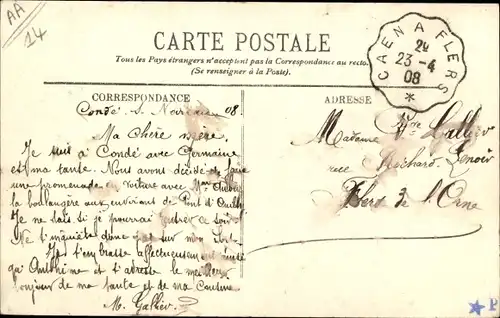 AA
14
CARTE POSTALE
Tous les Pays étrangers n'acceptent pas la Correspondance au recto
(Se renseigner à la Poste).
CAEN A FLERS
2e
23-4
08
*
CORRESPONDANCE
ADRESSE
Condé s. Noireau 08.
Ma chère mère
Je suis à Condé avec Germaine
et ma tante. Nous avons décidé de faire
une promenade en voiture avec Mme
la boulangère aux environs de Pont d'Ouilly
Je ne sais si je pourrai rentrer ce soir
Ne t'inquiète donc pas sur mon sort
Je t'embrasse affectueusement ainsi
qu'Onésime et t'adresse le meilleur
bonjour de ma tante et de ma Cousine
M. Gallier
Madame Vve Gallier
rue Richard Lenoir
Flers de l'Orne